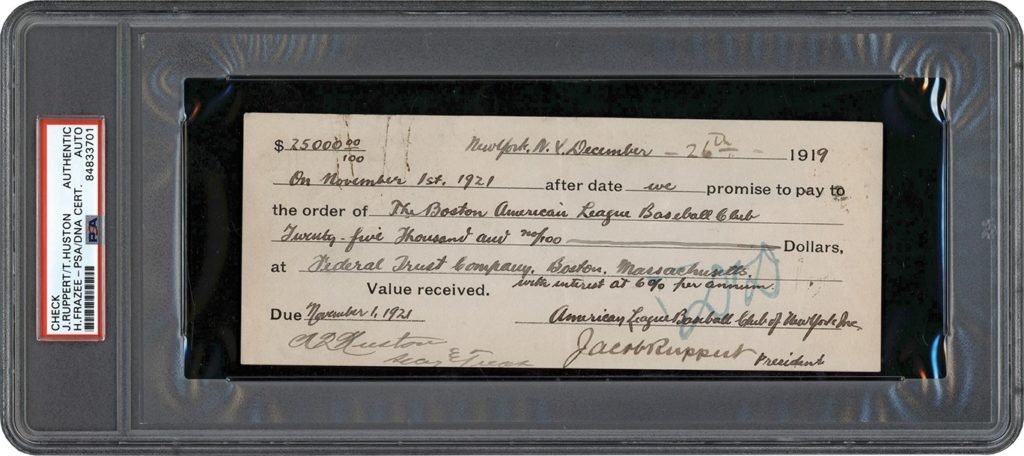 CHECK AUTHENTIC
J.RUPPERT/T.HUSTON AUTO
H.FRAZEE - PSA/DNA CERT. 84833701
PSA
$ 25000 00/100 New York, N.Y. December - 26th - 1919
On November 1st. 1921 after date we promise to pay to
the order of The Boston American League Baseball Club
Twenty-five Thousand and no/100 Dollars,
at Federal Trust Company, Boston, Massachusetts,
with interest at 6% per annum.
Value received.
Due November 1, 1921 American League Baseball Club of New York Inc.
Huston Jacob Ruppert
Secy & Treas President